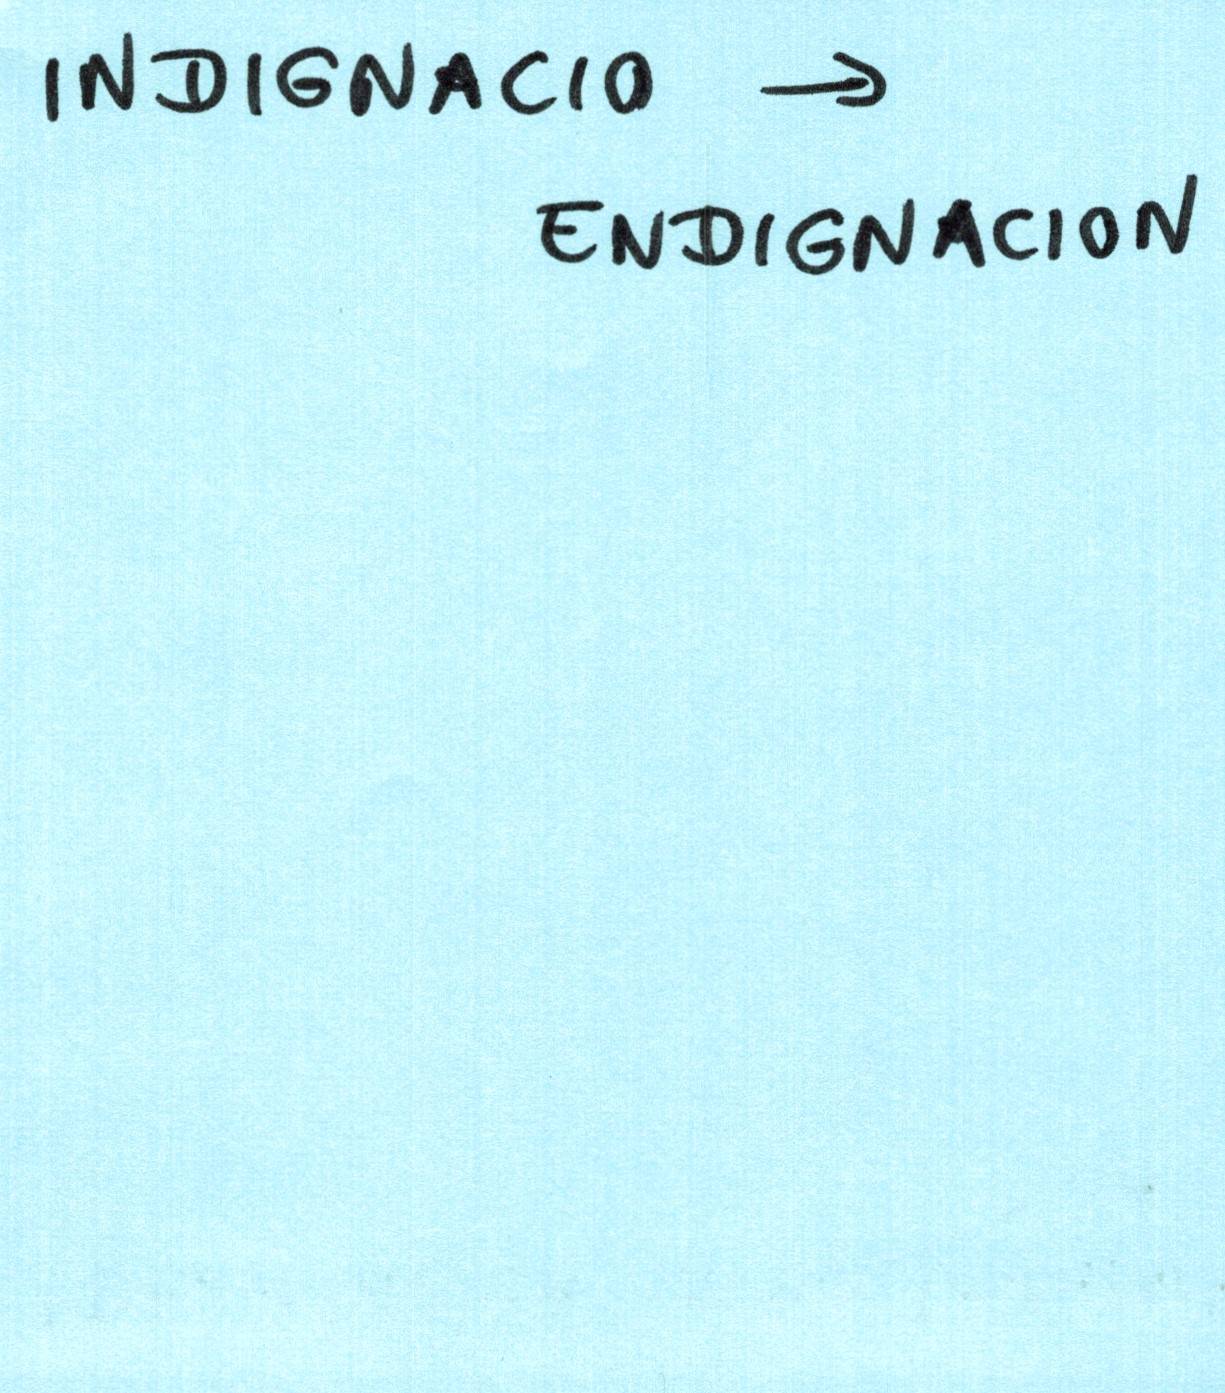 INDIGNACIO →
ENDIGNACION